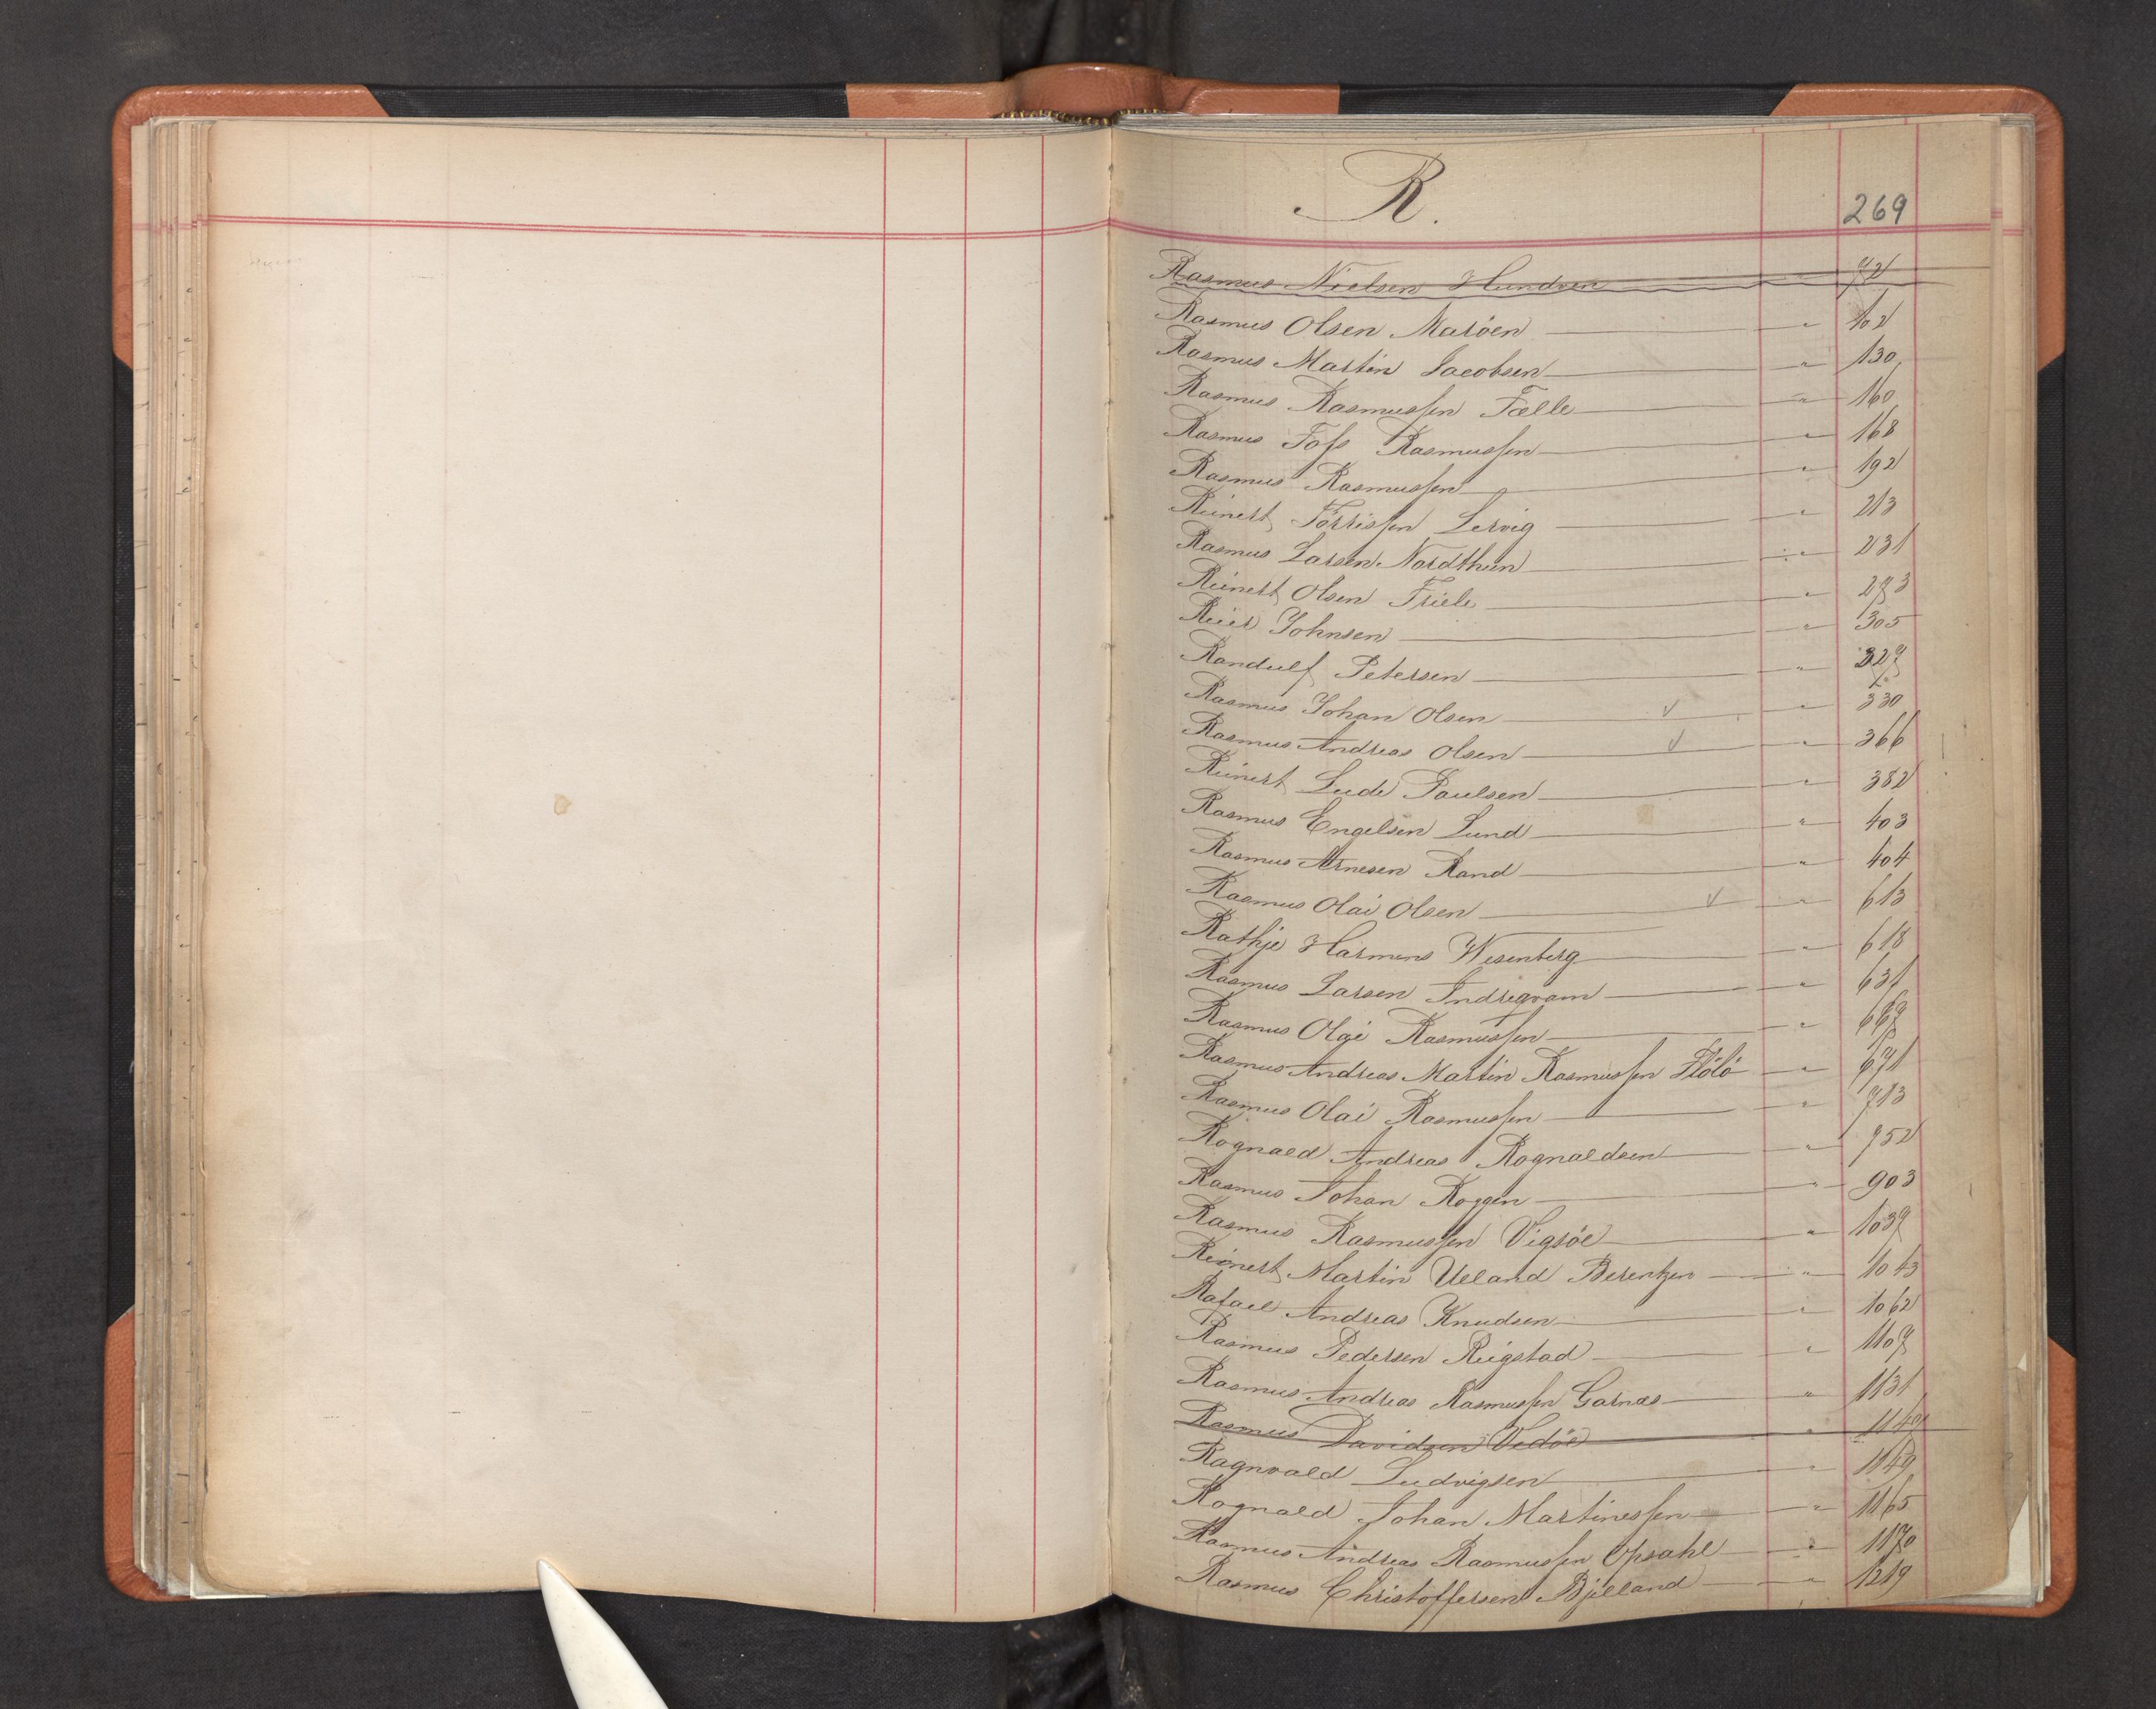 R.
269
Rasmus Nielsen Hundven " 72
Rasmus Olsen Marøen " 102
Rasmus Martin Jacobsen " 130
Rasmus Rasmussen Fælle " 160
Rasmus Tofs Rasmussen " 168
Rasmus Rasmussen " 192
Reinert Torrissen Lervig " 213
Rasmus Larsen Nordthun " 231
Reinert Olsen Friele " 273
Reier Johnsen " 305
Randulf Petersen " 327
Rasmus Johan Olsen " 330
Rasmus Andreas Olsen " 366
Reinert Lude Paulsen " 382
Rasmus Engelsen Lund " 403
Rasmus Arnesen Rand " 404
Rasmus Olai Olsen " 613
Rathje Harmens Wesenberg " 618
Rasmus Larsen Indregvam " 631
Rasmus Olai Rasmussen " 667
Rasmus Andreas Martin Rasmussen Flölö " 671
Rasmus Olai Rasmussen " 713
Rognald Andreas Rognaldsen " 752
Rasmus Johan Roggen " 903
Rasmus Rasmussen Vigsöe " 1037
Reinert Martin Ueland Berentzen " 1043
Rafael Andreas Knudsen " 1062
Rasmus Pedersen Reigstad " 1107
Rasmus Andreas Rasmussen Garnæs " 1131
Rasmus Davidsen Vedöe "
Ragnvald Ludvigsen " 1149
Rognald Johan Martinessen " 1165
Rasmus Andreas Rasmussen Opsahl " 1170
Rasmus Christoffersen Bjelland " 1219